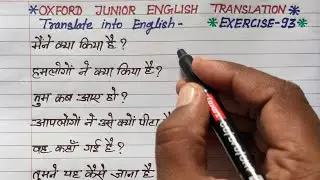 *OXFORD JUNIOR ENGLISH TRANSLATION*
Translate into English- *EXERCISE-93
मैंने क्या किया है?
हमलोगों ने क्या किया है?
तुम कब आए हो?
आपलोगों ने उसे क्यों पीटा है
वह कहाँ गई है?
तुमने यह कैसे जाना है